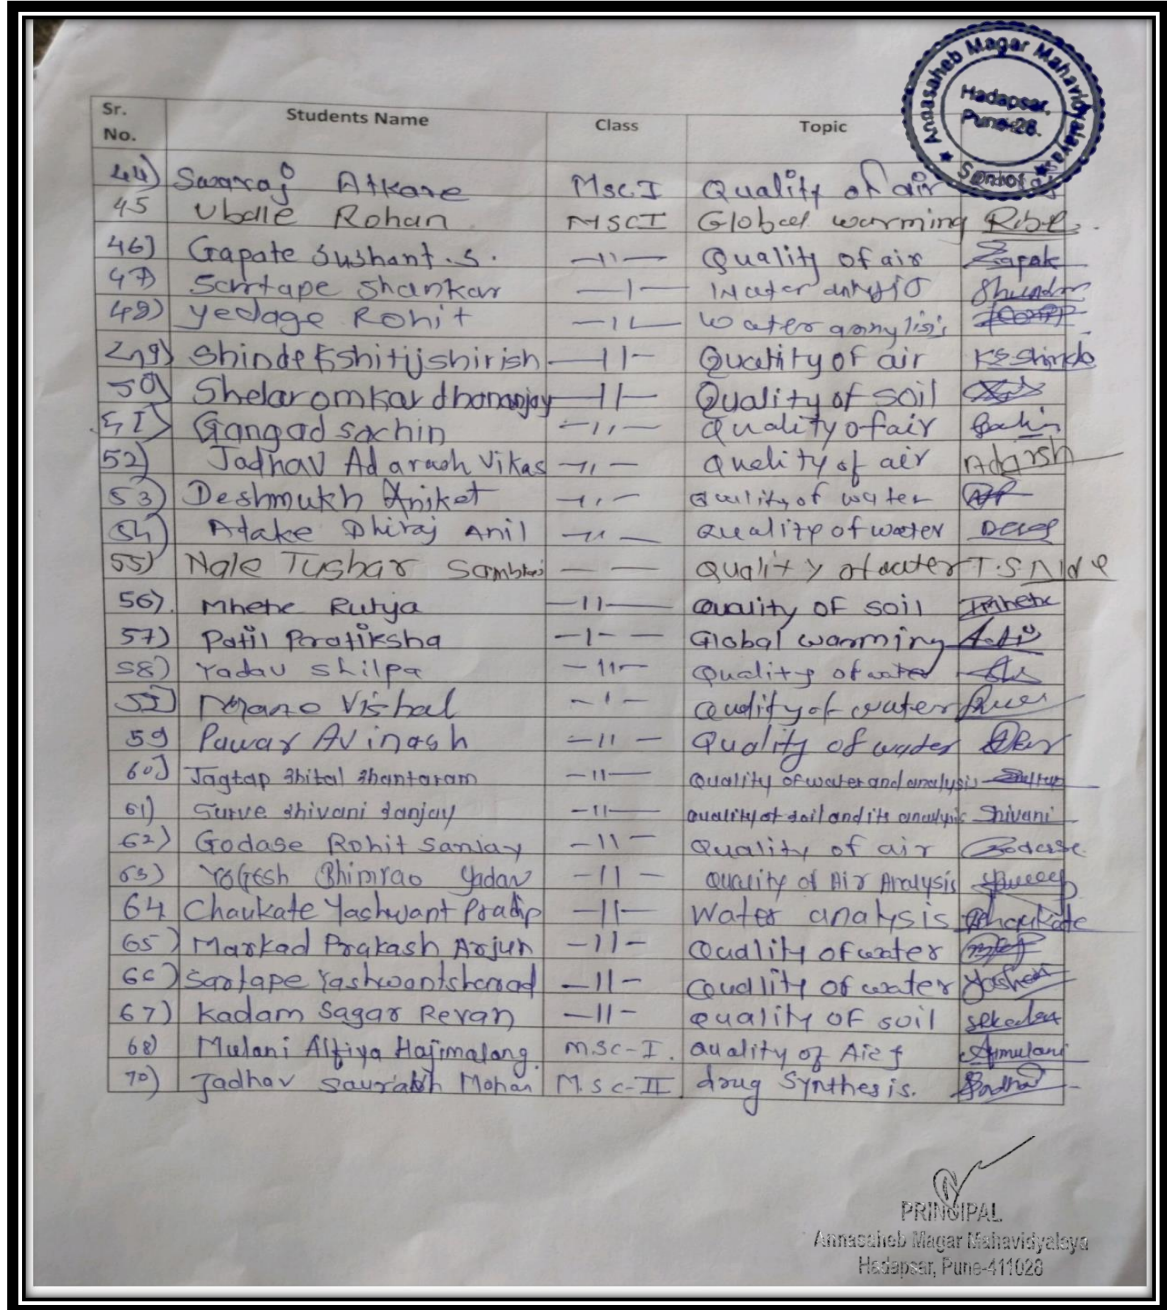 Annasaheb Magar Mahavidyalaya
Hadapsar,
Pune-28.
Sr. No. Students Name Class Topic
44) Swaraj Atkare Msc.I Quality of air
45 Ubale Rohan MSCI Global warming
46) Gapate Sushant.S. —11— Quality of air
47) Sartape Shankar —1— Water
48) Yedage Rohit —1L Water
49) Shinde Kshitij shirish —11— Quality of air KSShinde
50) Shelar omkar dhananjay —11— Quality of soil
51) Gangad sachin —11— Quality of air Sachin
52) Jadhav Adarash Vikas —11— Quality of air Adarsh
53) Deshmukh Aniket —11— Quality of water
54) Atake Dhiraj Anil —11— Quality of water
55) Nale Tushar — — Quality of water T.S Nale
56) Mhetre Rutja —11— Quality of soil
57) Patil Pratiksha —1— — Global warming
58) Yadav Shilpa —11— Quality of water
Vishal —1— Quality of water
59 Pawar Avinash —11— Quality of water
60) Jagtap Shital Shantaram —11— Quality of water and analysis
61) Surve Shivani Sanjay —11— quality of soil and its analysis Shivani
62) Godase Rohit Sanjay —11— Quality of air Godase
63) YOGESH Bhimrao Yadav —11— Quality of Air Analysis
64 Chaukate Yashwant Pradip —11— Water analysis Chaukate
65) Markad Prakash Arjun —11— Quality of water
66) Sartape Yashwant sharad —11— Quality of water
67) Kadam Sagar Revan —11— Quality of soil
68) Mulani Alfiya Hajimalang. M.SC-I. Quality of Air Amulani
70) Jadhav Saurabh Mohan M.SC-II drug Synthesis.
PRINCIPAL
Annasaheb Magar Mahavidyalaya
Hadapsar, Pune-411028